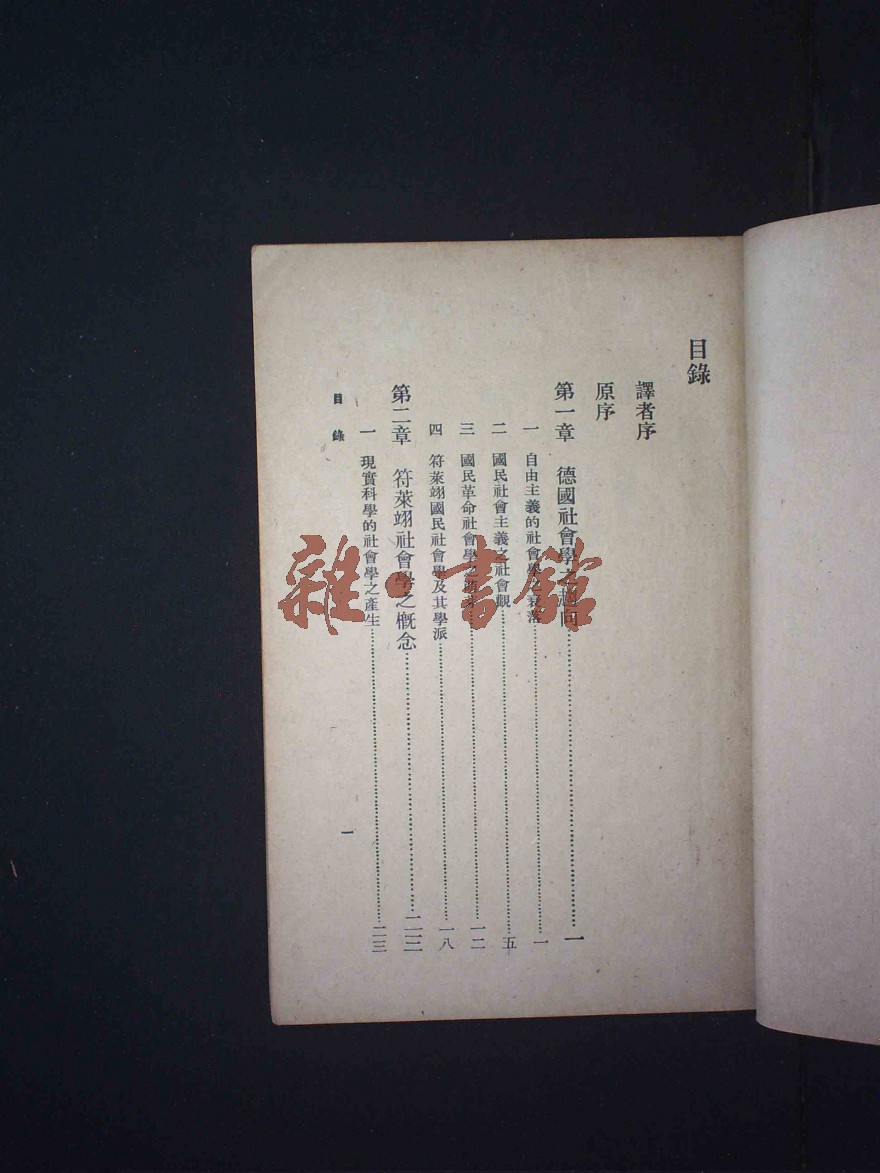 目錄
譯者序
原序
第一章 德國社會學之趨向 一
一 自由主義的社會學之衰落 一
二 國民社會主義之社會觀 五
三 國民革命社會學之 一二
四 符萊翊國民社會學及其學派 一八
第二章 符萊翊社會學之概念 二三
一 現實科學的社會學之產生 二三
目錄
一
雜·書館